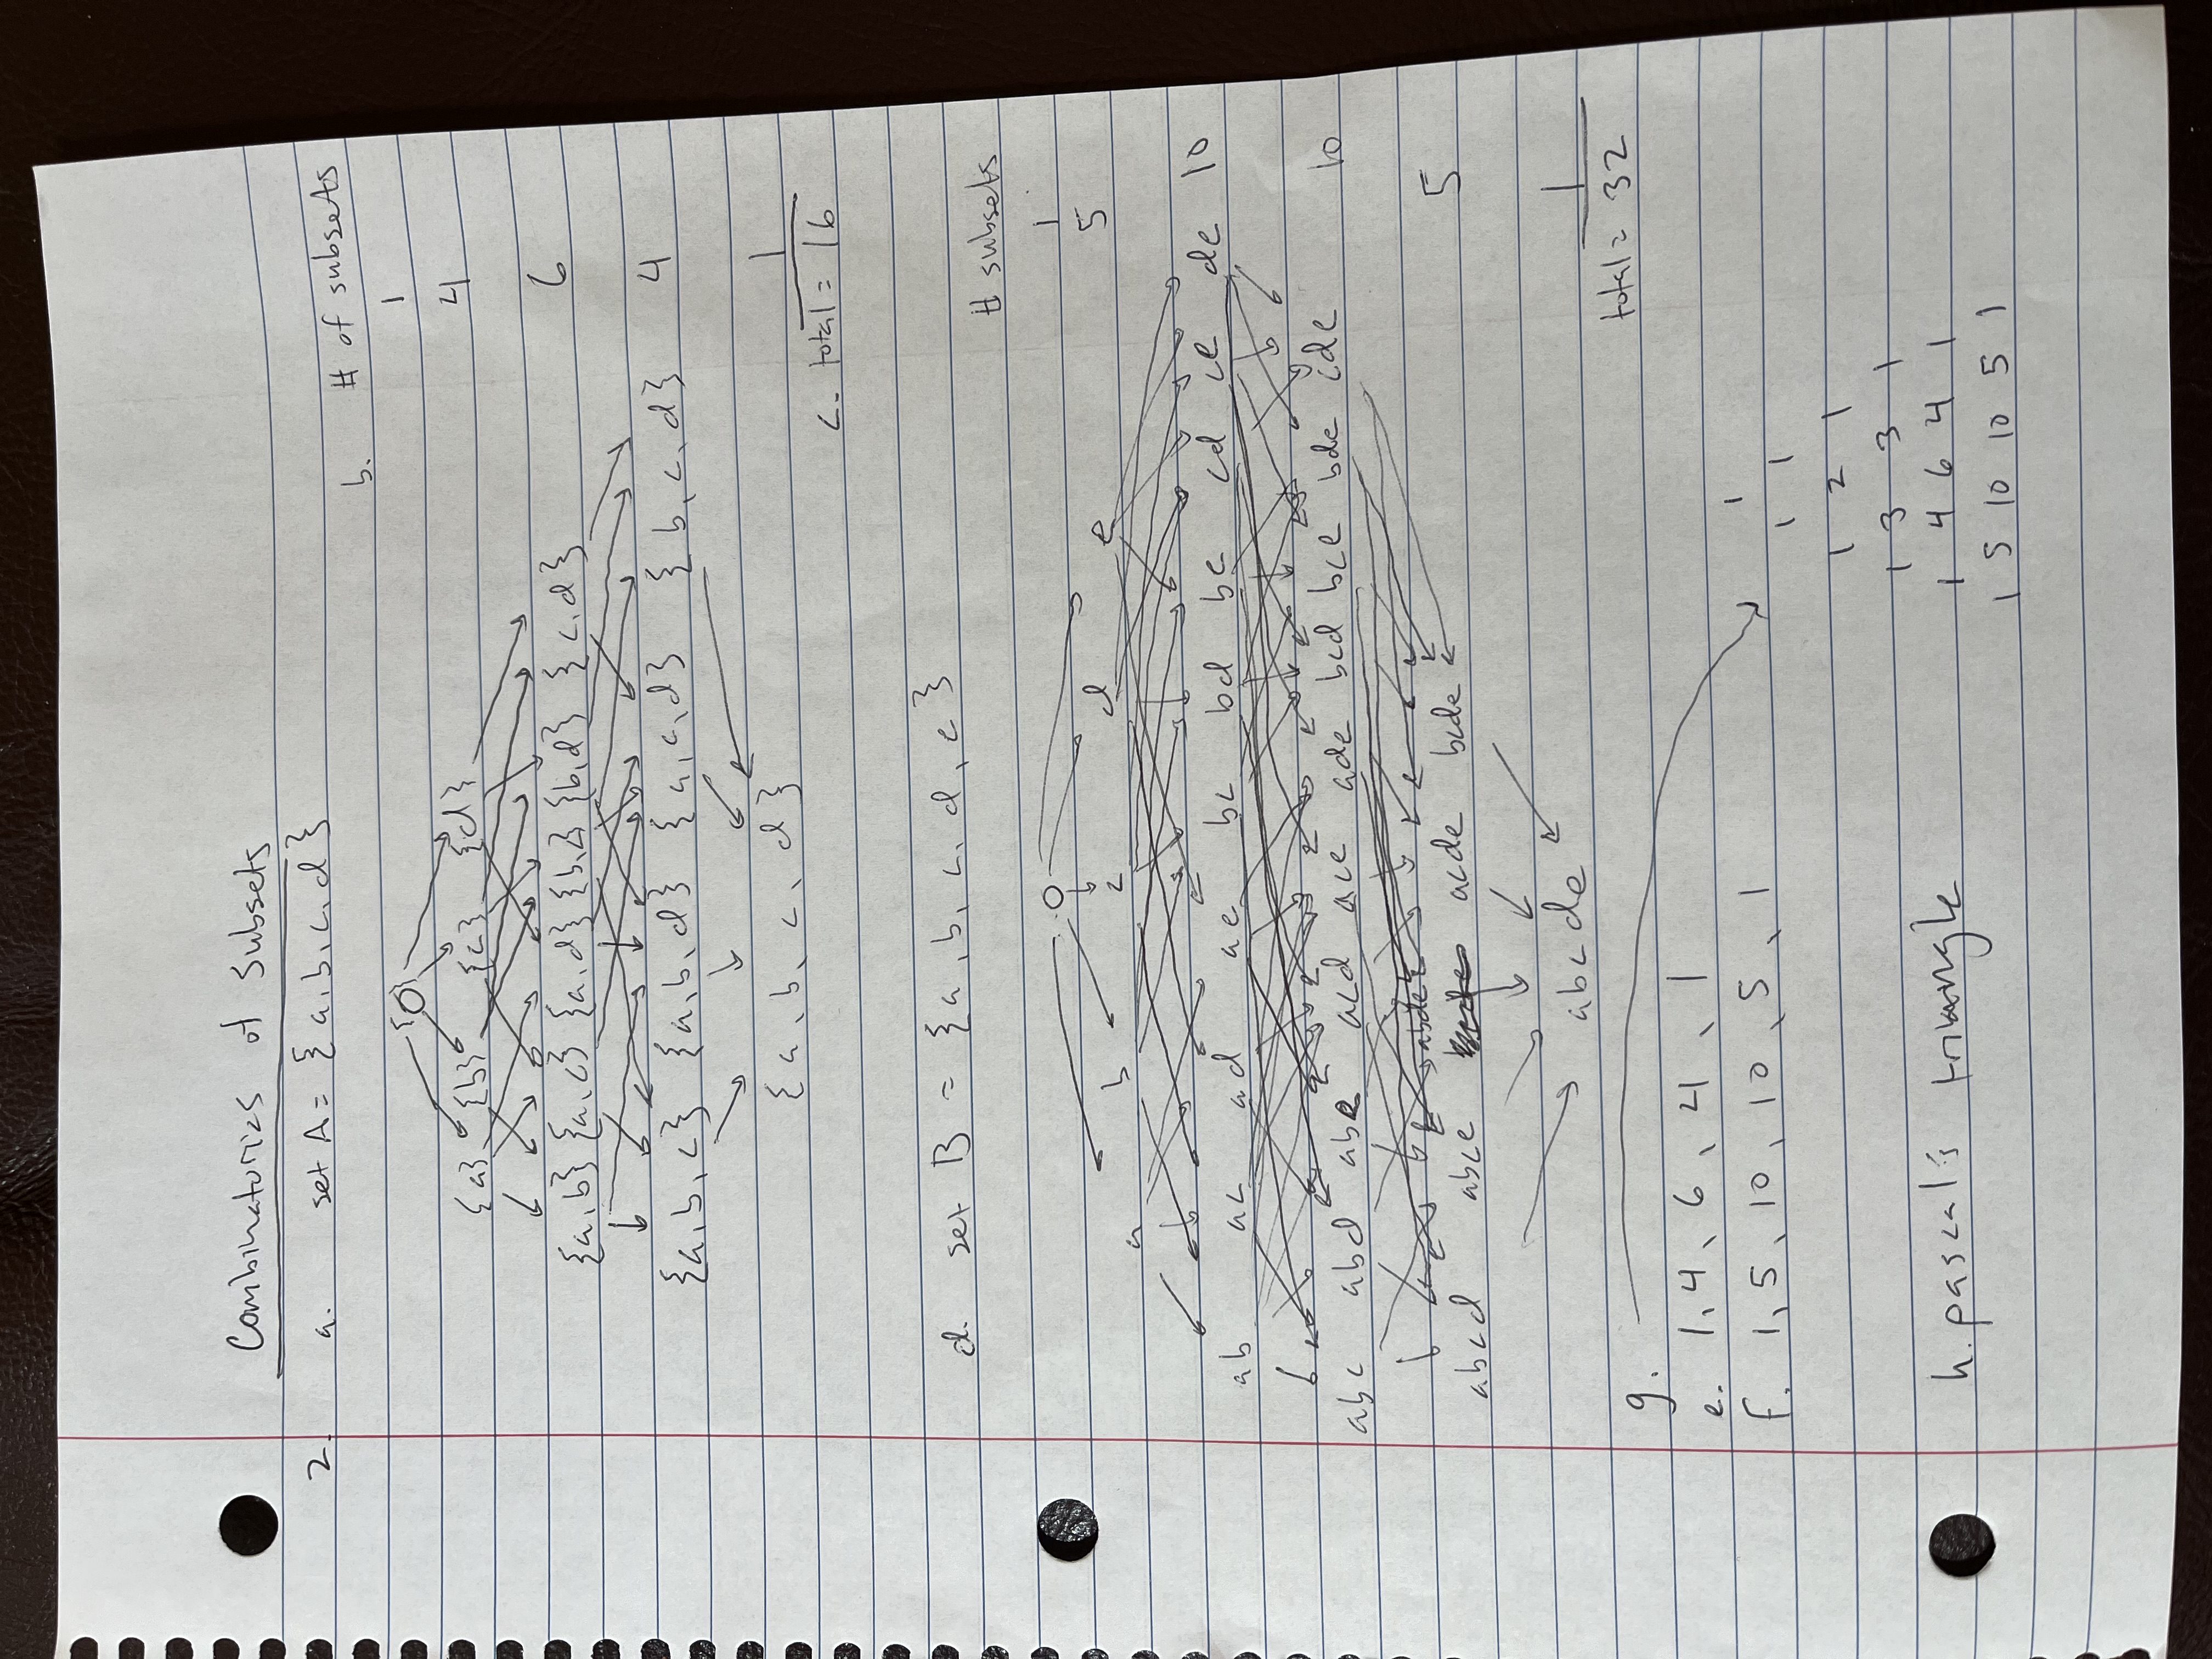 Combinatorics of Subsets
2. a. set A = {a, b, c, d}
b. # of subsets
{O} 1
{a} {b} {c} {d} 4
{a, b} {a, c} {a, d} {b, c} {b, d} {c, d} 6
{a, b, c} {a, b, d} {a, c, d} {b, c, d} 4
{a, b, c, d} 1
c. total = 16
d. set B = {a, b, c, d, e}
# subsets
O 1
a b c d e 5
ab ac ad ae bc bd be cd ce de 10
abc abd abe acd ace ade bcd bce bde cde 10
abde
abcd abce acde bcde 5
abcde 1
total = 32
g.
e. 1, 4, 6, 4, 1
f. 1, 5, 10, 10, 5, 1
1
1 1
1 2 1
1 3 3 1
h. pascal's triangle 1 4 6 4 1
1 5 10 10 5 1